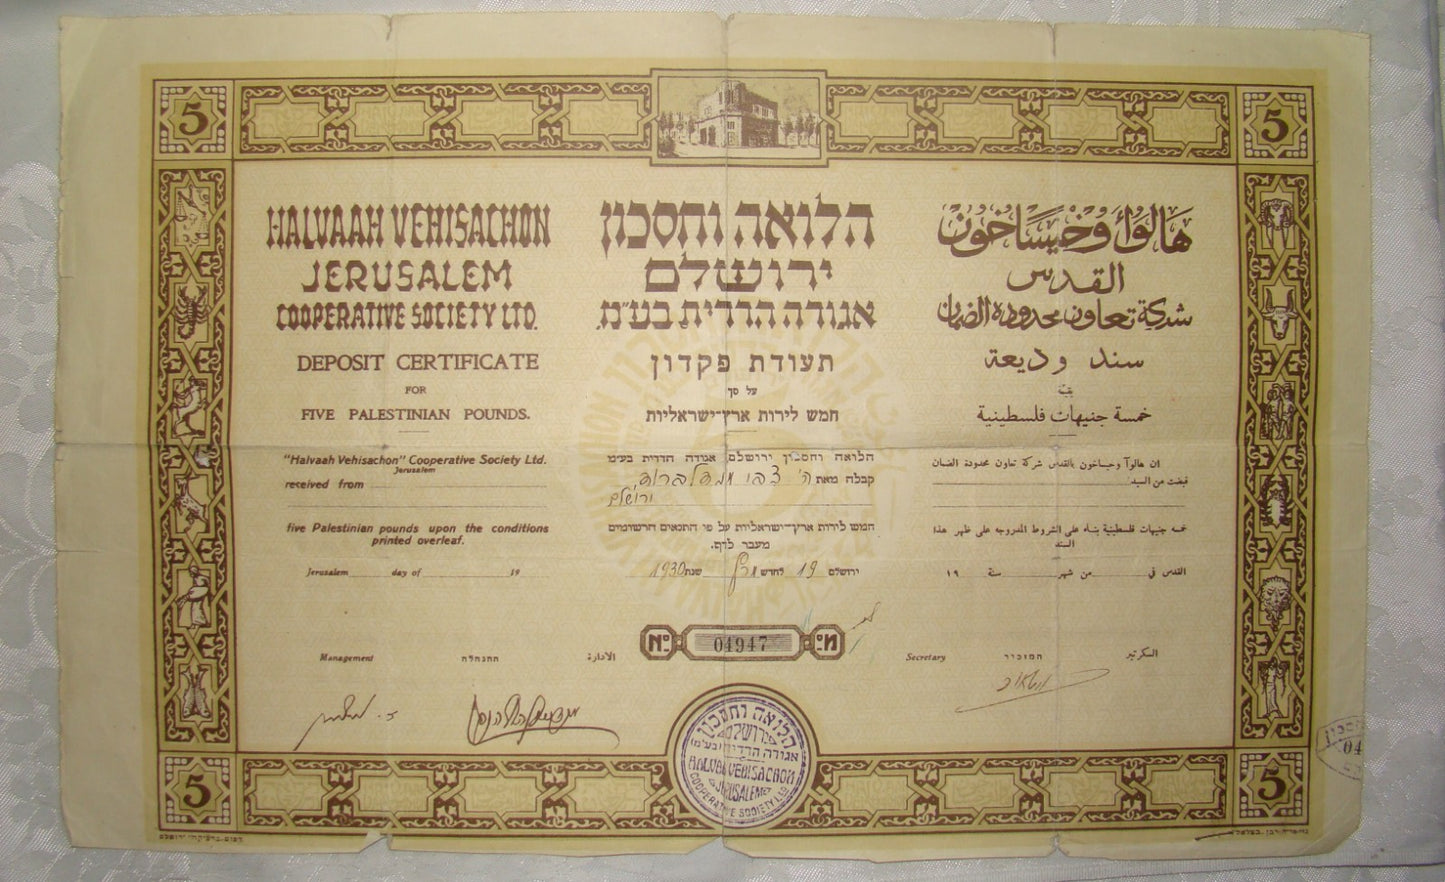 5
5
HALVAAH VEHISACHON
JERUSALEM
COOPERATIVE SOCIETY LTD.
DEPOSIT CERTIFICATE
FOR
FIVE PALESTINIAN POUNDS.
"Halvaah Vehisachon" Cooperative Society Ltd.
Jerusalem
received from
five Palestinian pounds upon the conditions
printed overleaf.
Jerusalem day of 19
הלואה וחסכון
ירושלם
אגודה הדדית בע"מ.
תעודת פקדון
על סך
חמש לירות ארץ־ישראליות
הלואה וחסכון ירושלם, אגודה הדדית בע"מ
קבלה מאת ה'
ירושלם
חמש לירות ארץ־ישראליות על פי התנאים הרשומים
מעבר לדף.
ירושלם 19 לחדש מרץ שנת 1930
هالوأه وخيساخون
القدس
شركة تعاون محدودة الضمان
سند وديعة
بقيمة
خمسة جنيهات فلسطينية
ان هالوآ وخيساخون بالقدس شركة تعاون محدودة الضمان
قبضت من السيد
خمسة جنيهات فلسطينية بناء على الشروط المدروجه على ظهر هذا
السند
القدس في من شهر سنة ١٩
No 04947 מס
Management ההנהלה الأدارة
Secretary המזכיר السكرتير
הלואה וחסכון
ירושלם
אגודה הדדית (בע"מ)
HALVAH VEHISACHON
JERUSALEM
COOPERATIVE SOCIETY LTD.
5
5